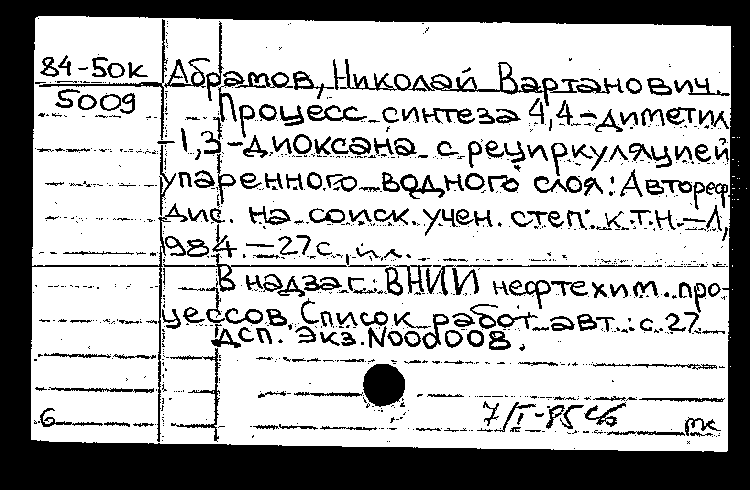 84-50к Абрамов, Николай Вартанович.
5009 Процесс синтеза 4,4-диметил
-1,3-диоксана с рециркуляцией
упаренного водного слоя: Автореф
дис. на соиск. учен. степ. к.т.н.-Л,
984.-27с, ил.
В надзаг: ВНИИ нефтехим. про-
цессов. Список работ авт.: с.27
ДСП. Экз.N000008.
7/I-85
6